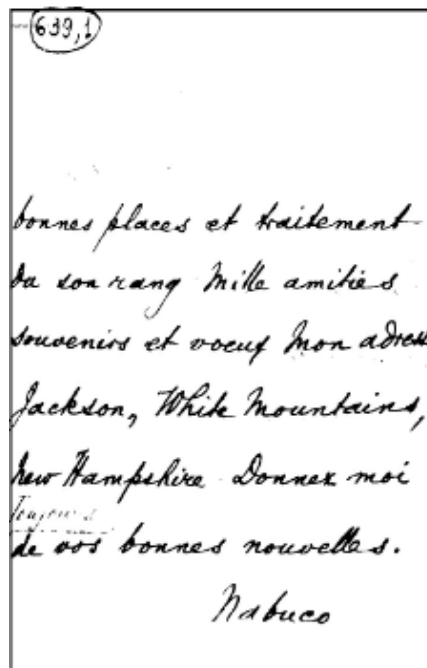 639,1
bonnes places et traitement
du son rang Mille amitiés
souvenirs et voeux Mon adress
Jackson, White Mountains,
New Hampshire Donnez moi
Toujours
de vos bonnes nouvelles.
Nabuco